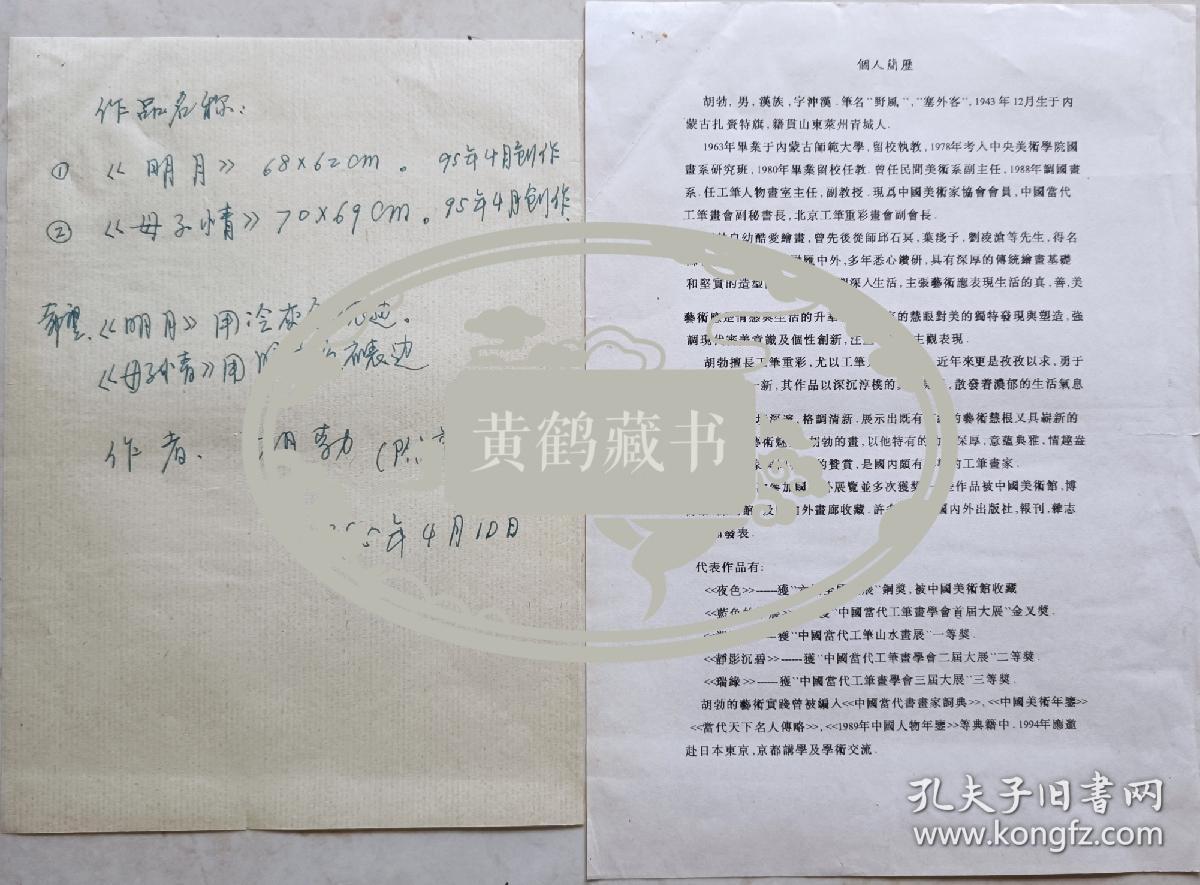 作品名称:
① 《明月》 68×62cm。 95年4月创作
② 《母子情》 70×69cm。 95年4月创作
希望《明月》用冷灰 边。
《母子情》用 裱边
作者. 胡勃
年4月10日
個人簡歷
胡勃,男,漢族,字沖漢.筆名"野風","塞外客",1943年12月生于内
蒙古扎賚特旗,籍貫山東萊州青城人.
1963年畢業于内蒙古師範大學,留校執教,1978年考入中央美術學院國
畫系研究班,1980年畢業留校任教.曾任民間美術系副主任,1988年調國畫
系.任工筆人物畫室主任,副教授.現爲中國美術家協會會員,中國當代
工筆畫會副秘書長,北京工筆重彩畫會副會長.
自幼酷愛繪畫,曾先後從師邱石冥,葉淺予,劉凌滄等先生,得名
中外,多年悉心鑽研,具有深厚的傳統繪畫基礎
和堅實的造型 深入生活,主張藝術應表現生活的真,善,美
藝術應是情感與生活的升華 的慧眼對美的獨特發現與塑造,強
調現代審美意識及個性創新,注 主觀表現.
胡勃擅長工筆重彩,尤以工筆 近年來更是孜孜以求,勇于
新,其作品以深沉淳樸的 散發着濃郁的生活氣息
格調清新.展示出既有 的藝術慧根又具嶄新的
藝術魅 胡勃的畫,以他特有的 深厚,意蘊典雅,情趣盎
的贊賞,是國内頗有 的工筆畫家.
參加國 外展覽並多次獲獎 作品被中國美術館,博
館 及 外畫廊收藏.許 國内外出版社,報刊,雜志
發表.
代表作品有:
<<夜色>>-----獲"六 展"銅獎,被中國美術館收藏
<<藍色的 "中國當代工筆畫學會首届大展"金叉獎.
獲"中國當代工筆山水畫展"一等獎.
<<靜影沉碧>>-----獲"中國當代工筆畫學會二届大展"二等獎.
<<瑞緣>>-----獲"中國當代工筆畫學會三届大展"三等獎.
胡勃的藝術實踐曾被編入<<中國當代書畫家詞典>>,<<中國美術年鑒>>
<<當代天下名人傳略>>,<<1989年中國人物年鑒>>等典籍中.1994年應邀
赴日本東京,京都講學及學術交流.
黄鹤藏书
孔夫子旧书网
www.kongfz.com